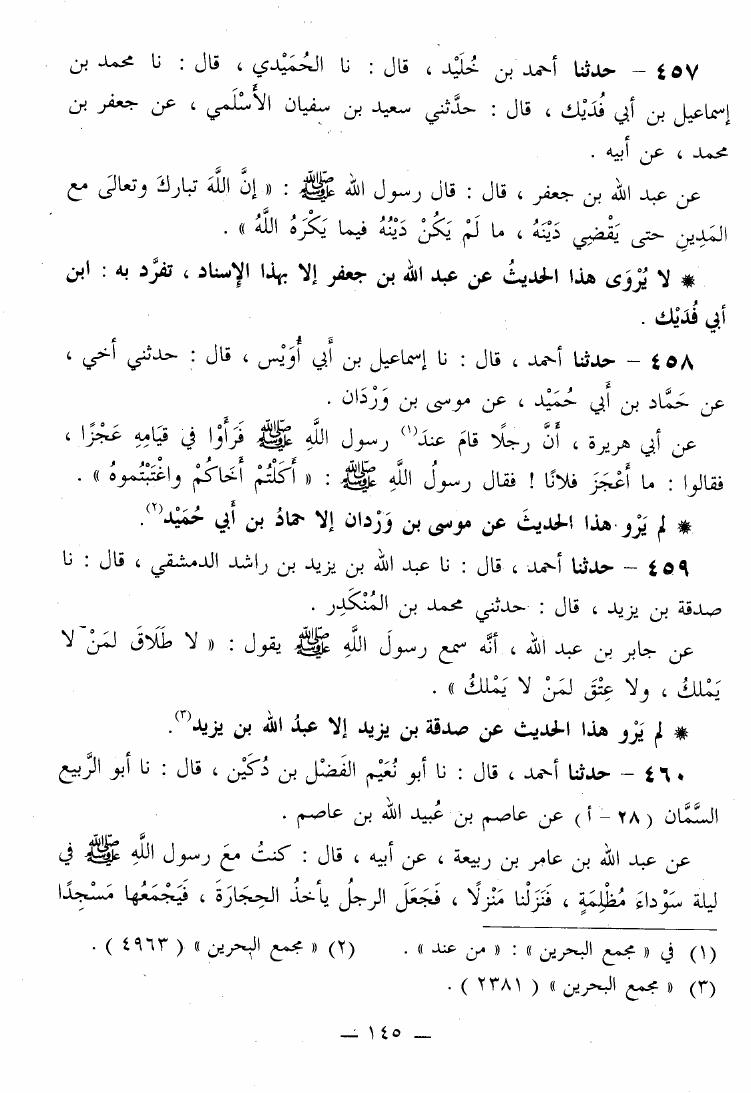 ٤٥٧ – حدثنا أحمد بن خُلَيْد ، قال : نا الحُمَيْدي ، قال : نا محمد بن
إسماعيل بن أبي فُدَيْك ، قال : حدَّثني سعيد بن سفيان الأَسْلَمي ، عن جعفر بن
محمد ، عن أبيه .
عن عبد الله بن جعفر ، قال : قال رسول الله ﷺ : « إنَّ اللَّهَ تباركَ وتعالَى مع
المَدِينِ حتى يَقْضِي دَيْنَهُ ، ما لَمْ يَكُنْ دَيْنُهُ فيما يَكْرَهُ اللَّهُ » .
* لا يُرْوَى هذا الحديثُ عن عبد الله بن جعفر إلا بهذا الإسناد ، تفرَّد به : ابن
أبي فُدَيْك .
٤٥٨ – حدثنا أحمد ، قال : نا إسماعيل بن أبي أُوَيْس ، قال : حدثني أخي ،
عن حَمَّاد بن أبي حُمَيْد ، عن موسى بن وَرْدَان .
عن أبي هريرة ، أَنَّ رجلًا قامَ عندَ(١) رسول اللَّهِ ﷺ فَرَأَوْا في قيَامِهِ عَجْزًا ،
فقالوا : ما أَعْجَزَ فلانًا ! فقال رسولُ اللَّهِ ﷺ : « أَكَلْتُمْ أَخَاكُمْ واغْتَبْتُموهُ » .
* لم يَرْو هذا الحديثَ عن موسى بن وَرْدان إلا حمادُ بن أبي حُمَيْد(٢).
٤٥٩ – حدثنا أحمد ، قال : نا عبد الله بن يزيد بن راشد الدمشقي ، قال : نا
صدقة بن يزيد ، قال : حدثني محمد بن المُنْكَدِر .
عن جابر بن عبد الله ، أنَّه سمع رسولَ اللَّهِ ﷺ يقول : « لا طَلَاقَ لمَنْ لا
يَمْلكُ ، ولا عِتْقَ لمَنْ لا يَمْلكُ » .
* لم يَرْو هذا الحديث عن صدقة بن يزيد إلا عبدُ الله بن يزيد(٣).
٤٦٠ – حدثنا أحمد ، قال : نا أبو نُعَيْم الفَضْل بن دُكَيْن ، قال : نا أبو الرَّبيع
السَّمَّان ( ٢٨ – أ ) عن عاصم بن عُبيد الله بن عاصم .
عن عبد الله بن عامر بن ربيعة ، عن أبيه ، قال : كنتُ معَ رسول اللَّهِ ﷺ في
ليلة سَوْداءَ مُظْلِمَةٍ ، فَنَزَلْنا مَنْزِلًا ، فَجَعَلَ الرجلُ يأخذُ الحِجَارَةَ ، فَيَجْمَعُها مَسْجِدًا
(١) في « مجمع البحرين » : « من عند » . (٢) « مجمع البحرين » ( ٤٩٦٣ ) .
(٣) « مجمع البحرين » ( ٢٣٨١ ) .
– ١٤٥ –